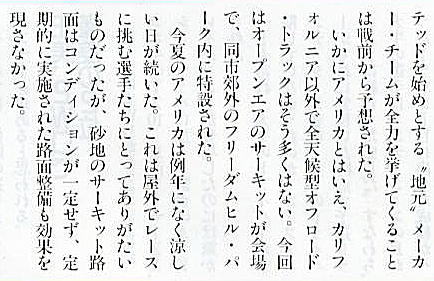 テッドを始めとする〝地元〟メーカ
ー・チームが全力を挙げてくること
は戦前から予想された。
　いかにアメリカとはいえ、カリフ
ォルニア以外で全天候型オフロード
・トラックはそう多くはない。今回
はオープンエアのサーキットが会場
で、同市郊外のフリーダムヒル・パ
ーク内に特設された。
　今夏のアメリカは例年になく涼し
い日が続いた。これは屋外でレース
に挑む選手たちにとってありがたい
ものだったが、砂地のサーキット路
面はコンディションが一定せず、定
期的に実施された路面整備も効果を
現さなかった。